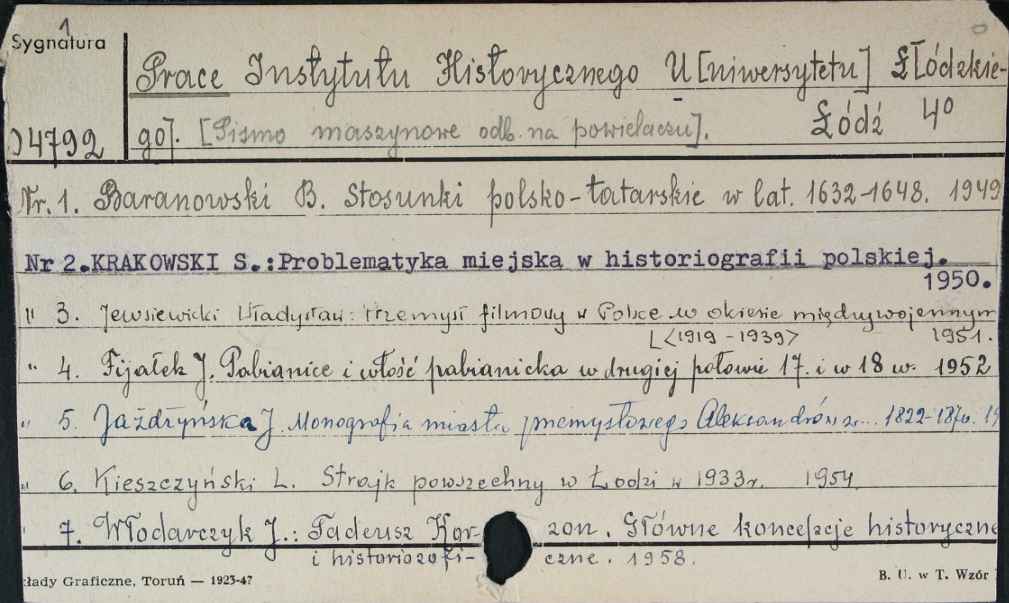 1
Sygnatura
Prace Instytutu Historycznego U[niwersytetu] Łódzkie-
go]. [Pismo maszynowe odb. na powielaczu]. Łódź 4°
04792
Nr. 1. Baranowski B. Stosunki polsko-tatarskie w lat. 1632-1648. 1949
Nr 2.KRAKOWSKI S.:Problematyka miejska w historiografii polskiej.
1950.
" 3. Jewsiewicki Władysław: Przemysł filmowy w Polsce w okresie międzywojennym
<1919-1939> 1951.
" 4. Fijałek J. Pabianice i włość pabianicka w drugiej połowie 17. i w 18 w. 1952
" 5. Jażdżyńska J. Monografia miasta przemysłowego Aleksandrów 1822-1870.
" 6. Kieszczyński L. Strajk powszechny w Łodzi w 1933r. 1954
" 7. Włodarczyk J.: Tadeusz Kor- zon. Główne koncepcje historyczne
i historiozofi- czne. 1958.
łady Graficzne, Toruń — 1923-47
B. U. w T. Wzór